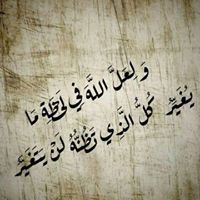 وَلعَلَّ اللَّهَ فِي لَحْظَةٍ مَا
يُغَيِّرُ كُلُّ الَّذِي تَظُنُّهُ لَنْ يَتَغَيَّرْ